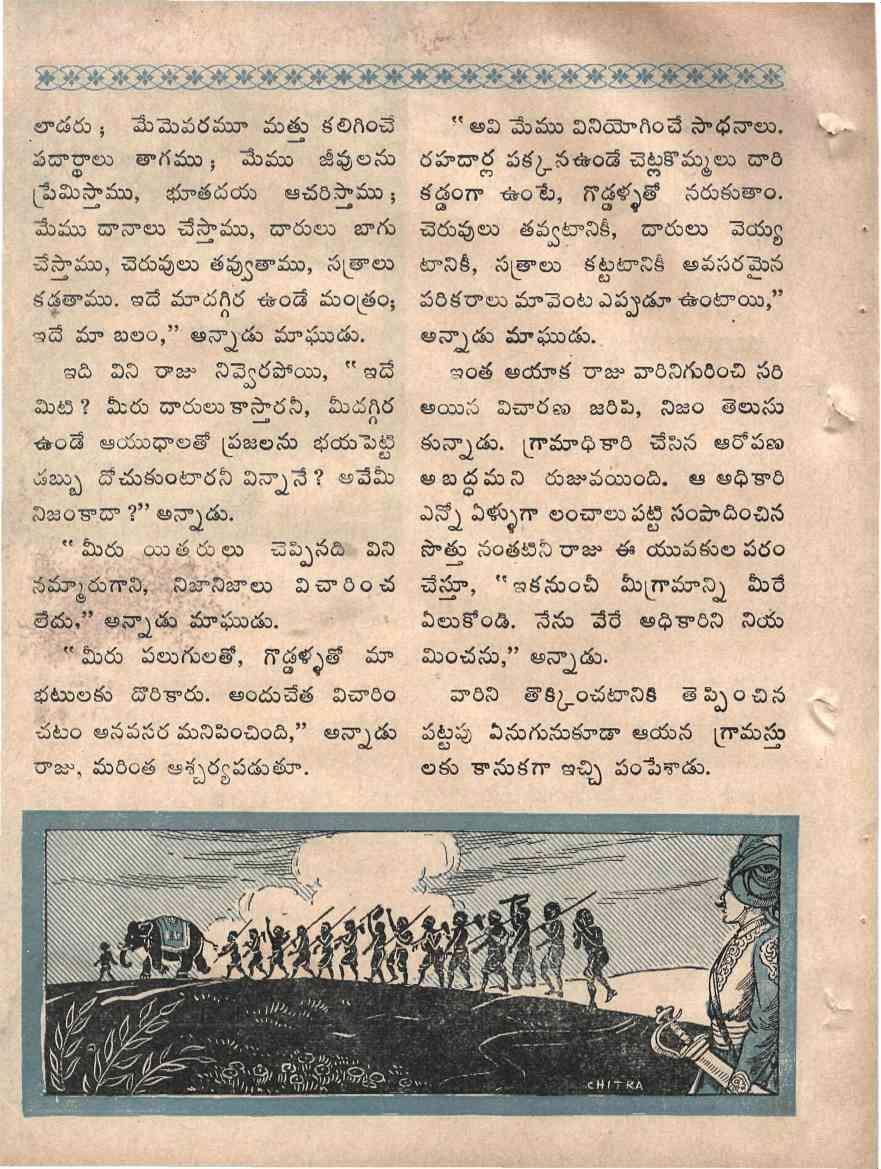 లాడరు; మేమెవరమూ మత్తు కలిగించే
పదార్థాలు తాగము; మేము జీవులను
ప్రేమిస్తాము, భూతదయ ఆచరిస్తాము;
మేము దానాలు చేస్తాము, దారులు బాగు
చేస్తాము, చెరువులు తవ్వుతాము, సత్రాలు
కడ్తతాము. ఇదే మాదగ్గిర ఉండే మంత్రం;
ఇదే మా బలం,” అన్నాడు మాఘుడు.
ఇది విని రాజు నివ్వెరపోయి, “ఇదే
మిటి? మీరు దారులుకాస్తారనీ, మీదగ్గిర
ఉండే ఆయుధాలతో ప్రజలను భయపెట్టి
డబ్బు దోచుకుంటారనీ విన్నానే? అవేమీ
నిజంకాదా?” అన్నాడు.
“మీరు యితరులు చెప్పినది విని
నమ్మారుగాని, నిజానిజాలు విచారించ
లేదు,” అన్నాడు మాఘుడు.
“మీరు పలుగులతో, గొడ్డళ్ళతో మా
భటులకు దొరికారు. అందుచేత విచారిం
చటం అనవసర మనిపించింది,” అన్నాడు
రాజు, మరింత ఆశ్చర్యపడుతూ.
“అవి మేము వినియోగించే సాధనాలు.
రహదార్ల పక్కనఉండే చెట్లకొమ్మలు దారి
కడ్డంగా ఉంటే, గొడ్డళ్ళతో నరుకుతాం.
చెరువులు తవ్వటానికీ, దారులు వెయ్య
టానికీ, సత్రాలు కట్టటానికీ అవసరమైన
పరికరాలు మావెంట ఎప్పుడూ ఉంటాయి,”
అన్నాడు మాఘుడు.
ఇంత అయాక రాజు వారినిగురించి సరి
అయిన విచారణ జరిపి, నిజం తెలుసు
కున్నాడు. గ్రామాధికారి చేసిన ఆరోపణ
అబద్ధమని రుజువయింది. ఆ అధికారి
ఎన్నో ఏళ్ళుగా లంచాలుపట్టి సంపాదించిన
సొత్తు నంతటినీ రాజు ఈ యువకుల పరం
చేస్తూ, “ఇకనుంచీ మీగ్రామాన్ని మీరే
ఏలుకోండి. నేను వేరే అధికారిని నియ
మించను,” అన్నాడు.
వారిని తొక్కించటానికి తెప్పించిన
పట్టపు ఏనుగునుకూడా ఆయన గ్రామస్తు
లకు కానుకగా ఇచ్చి పంపేశాడు.
CHITRA